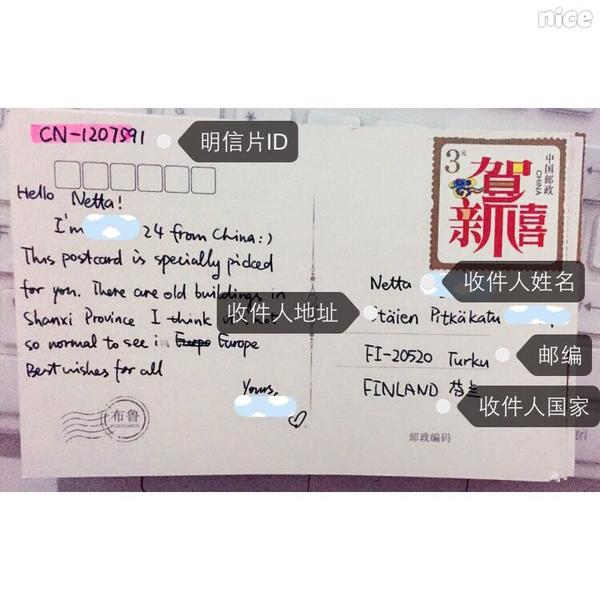 nice
CN-1207591
明信片ID
Hello Netta!
I'm 24 from China:)
This postcard is specially picked
for you. There are old buildings in
Shanxi Province I think not
so normal to see i Europe
Best wishes for all
Yours,
布鲁
POSTCARDS
3元
中国邮政
CHINA
贺
新禧
Netta
收件人姓名
收件人地址
Stäien Pitkäkatu
FI-20520 Turku
邮编
FINLAND 芬兰
收件人国家
邮政编码